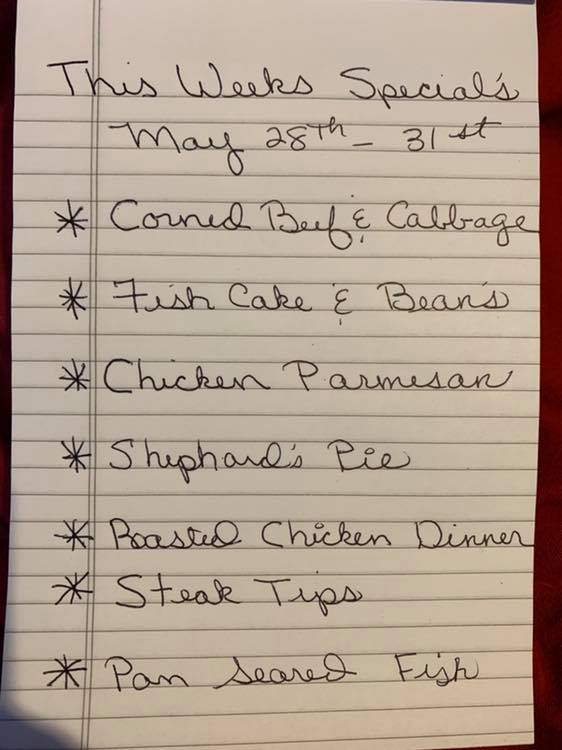 This Weeks Special's
May 28th - 31st
* Corned Beef & Cabbage
* Fish Cake & Bean's
* Chicken Parmesan
* Shephard's Pie
* Roasted Chicken Dinner
* Steak Tips
* Pan Seared Fish